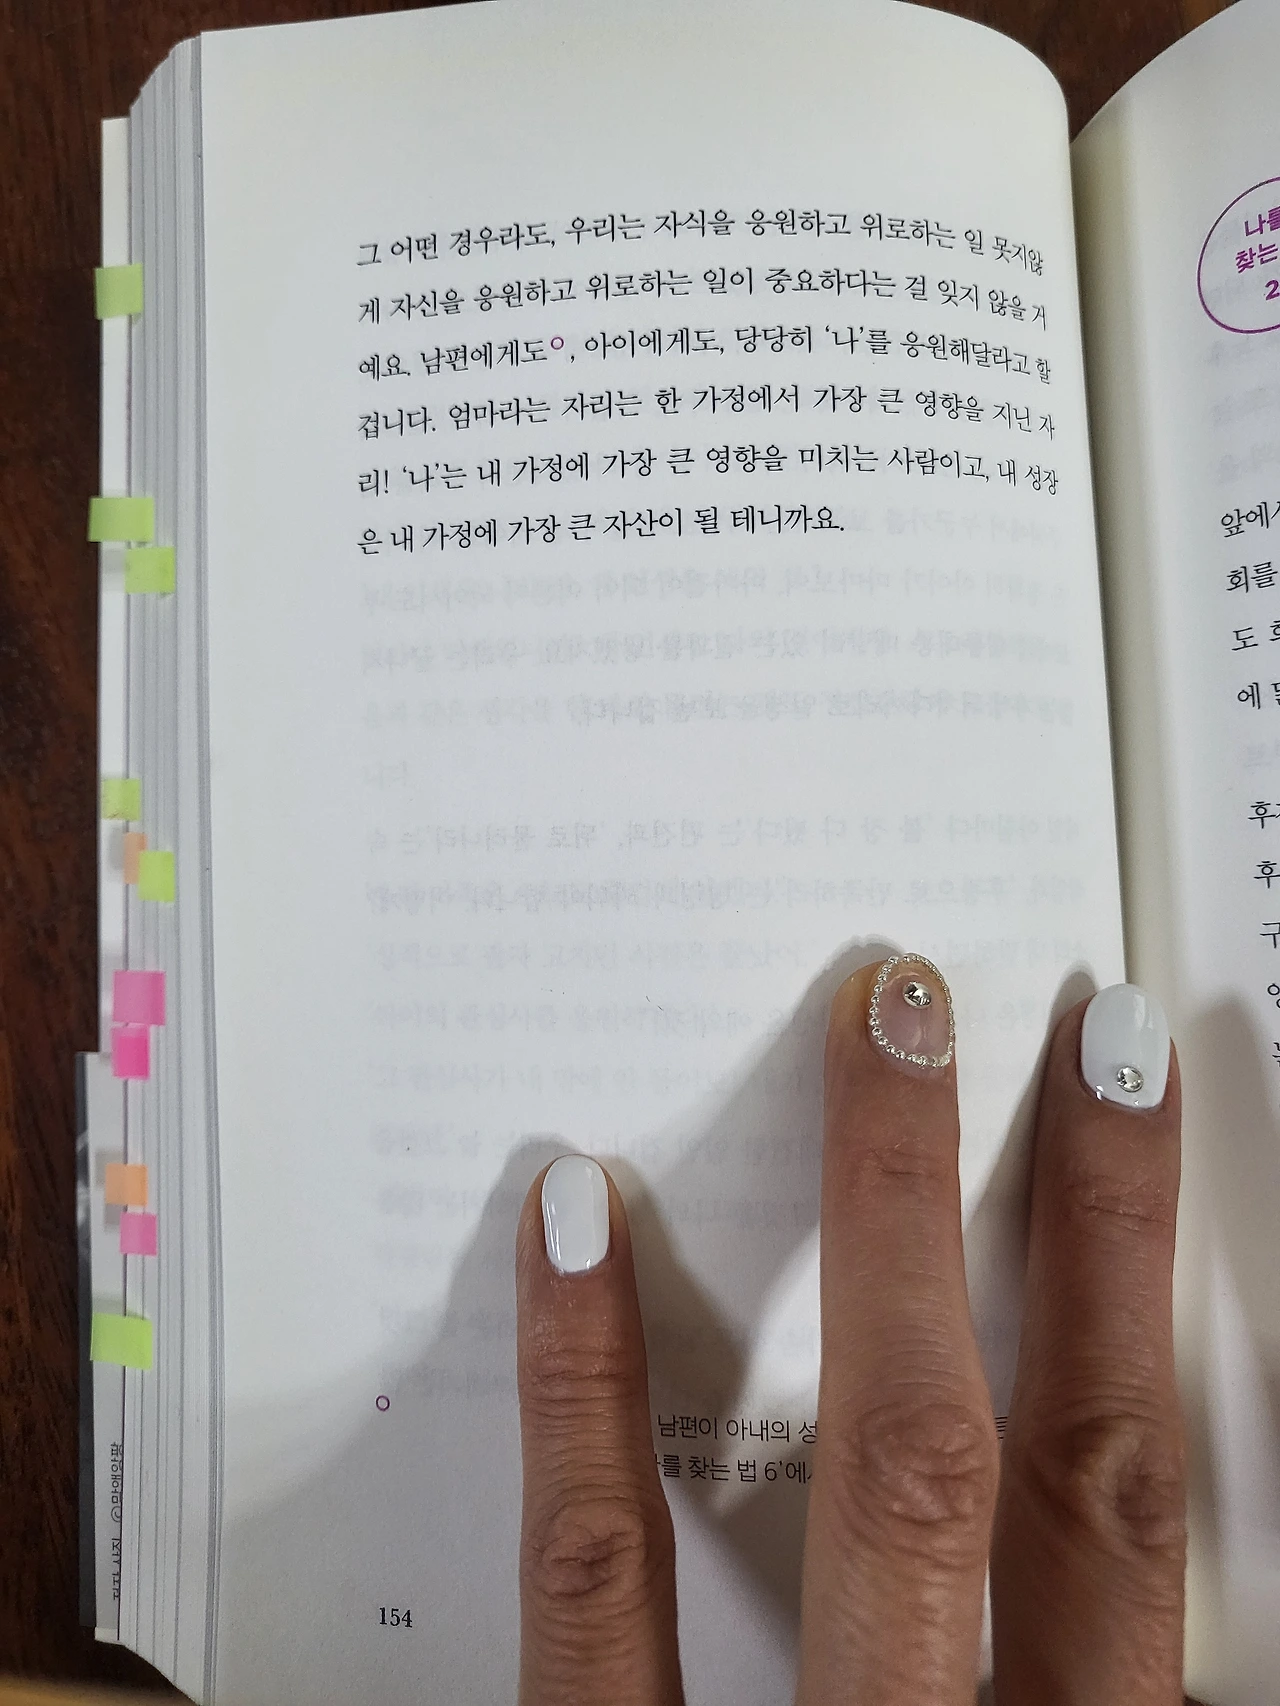 그 어떤 경우라도, 우리는 자식을 응원하고 위로하는 일 못지않
게 자신을 응원하고 위로하는 일이 중요하다는 걸 잊지 않을 거
예요. 남편에게도°, 아이에게도, 당당히 ‘나’를 응원해달라고 할
겁니다. 엄마라는 자리는 한 가정에서 가장 큰 영향을 지닌 자
리! ‘나’는 내 가정에 가장 큰 영향을 미치는 사람이고, 내 성장
은 내 가정에 가장 큰 자산이 될 테니까요.
남편이 아내의
찾는 법 6’에
154
나를
찾는
2
앞에서
회를
도
에